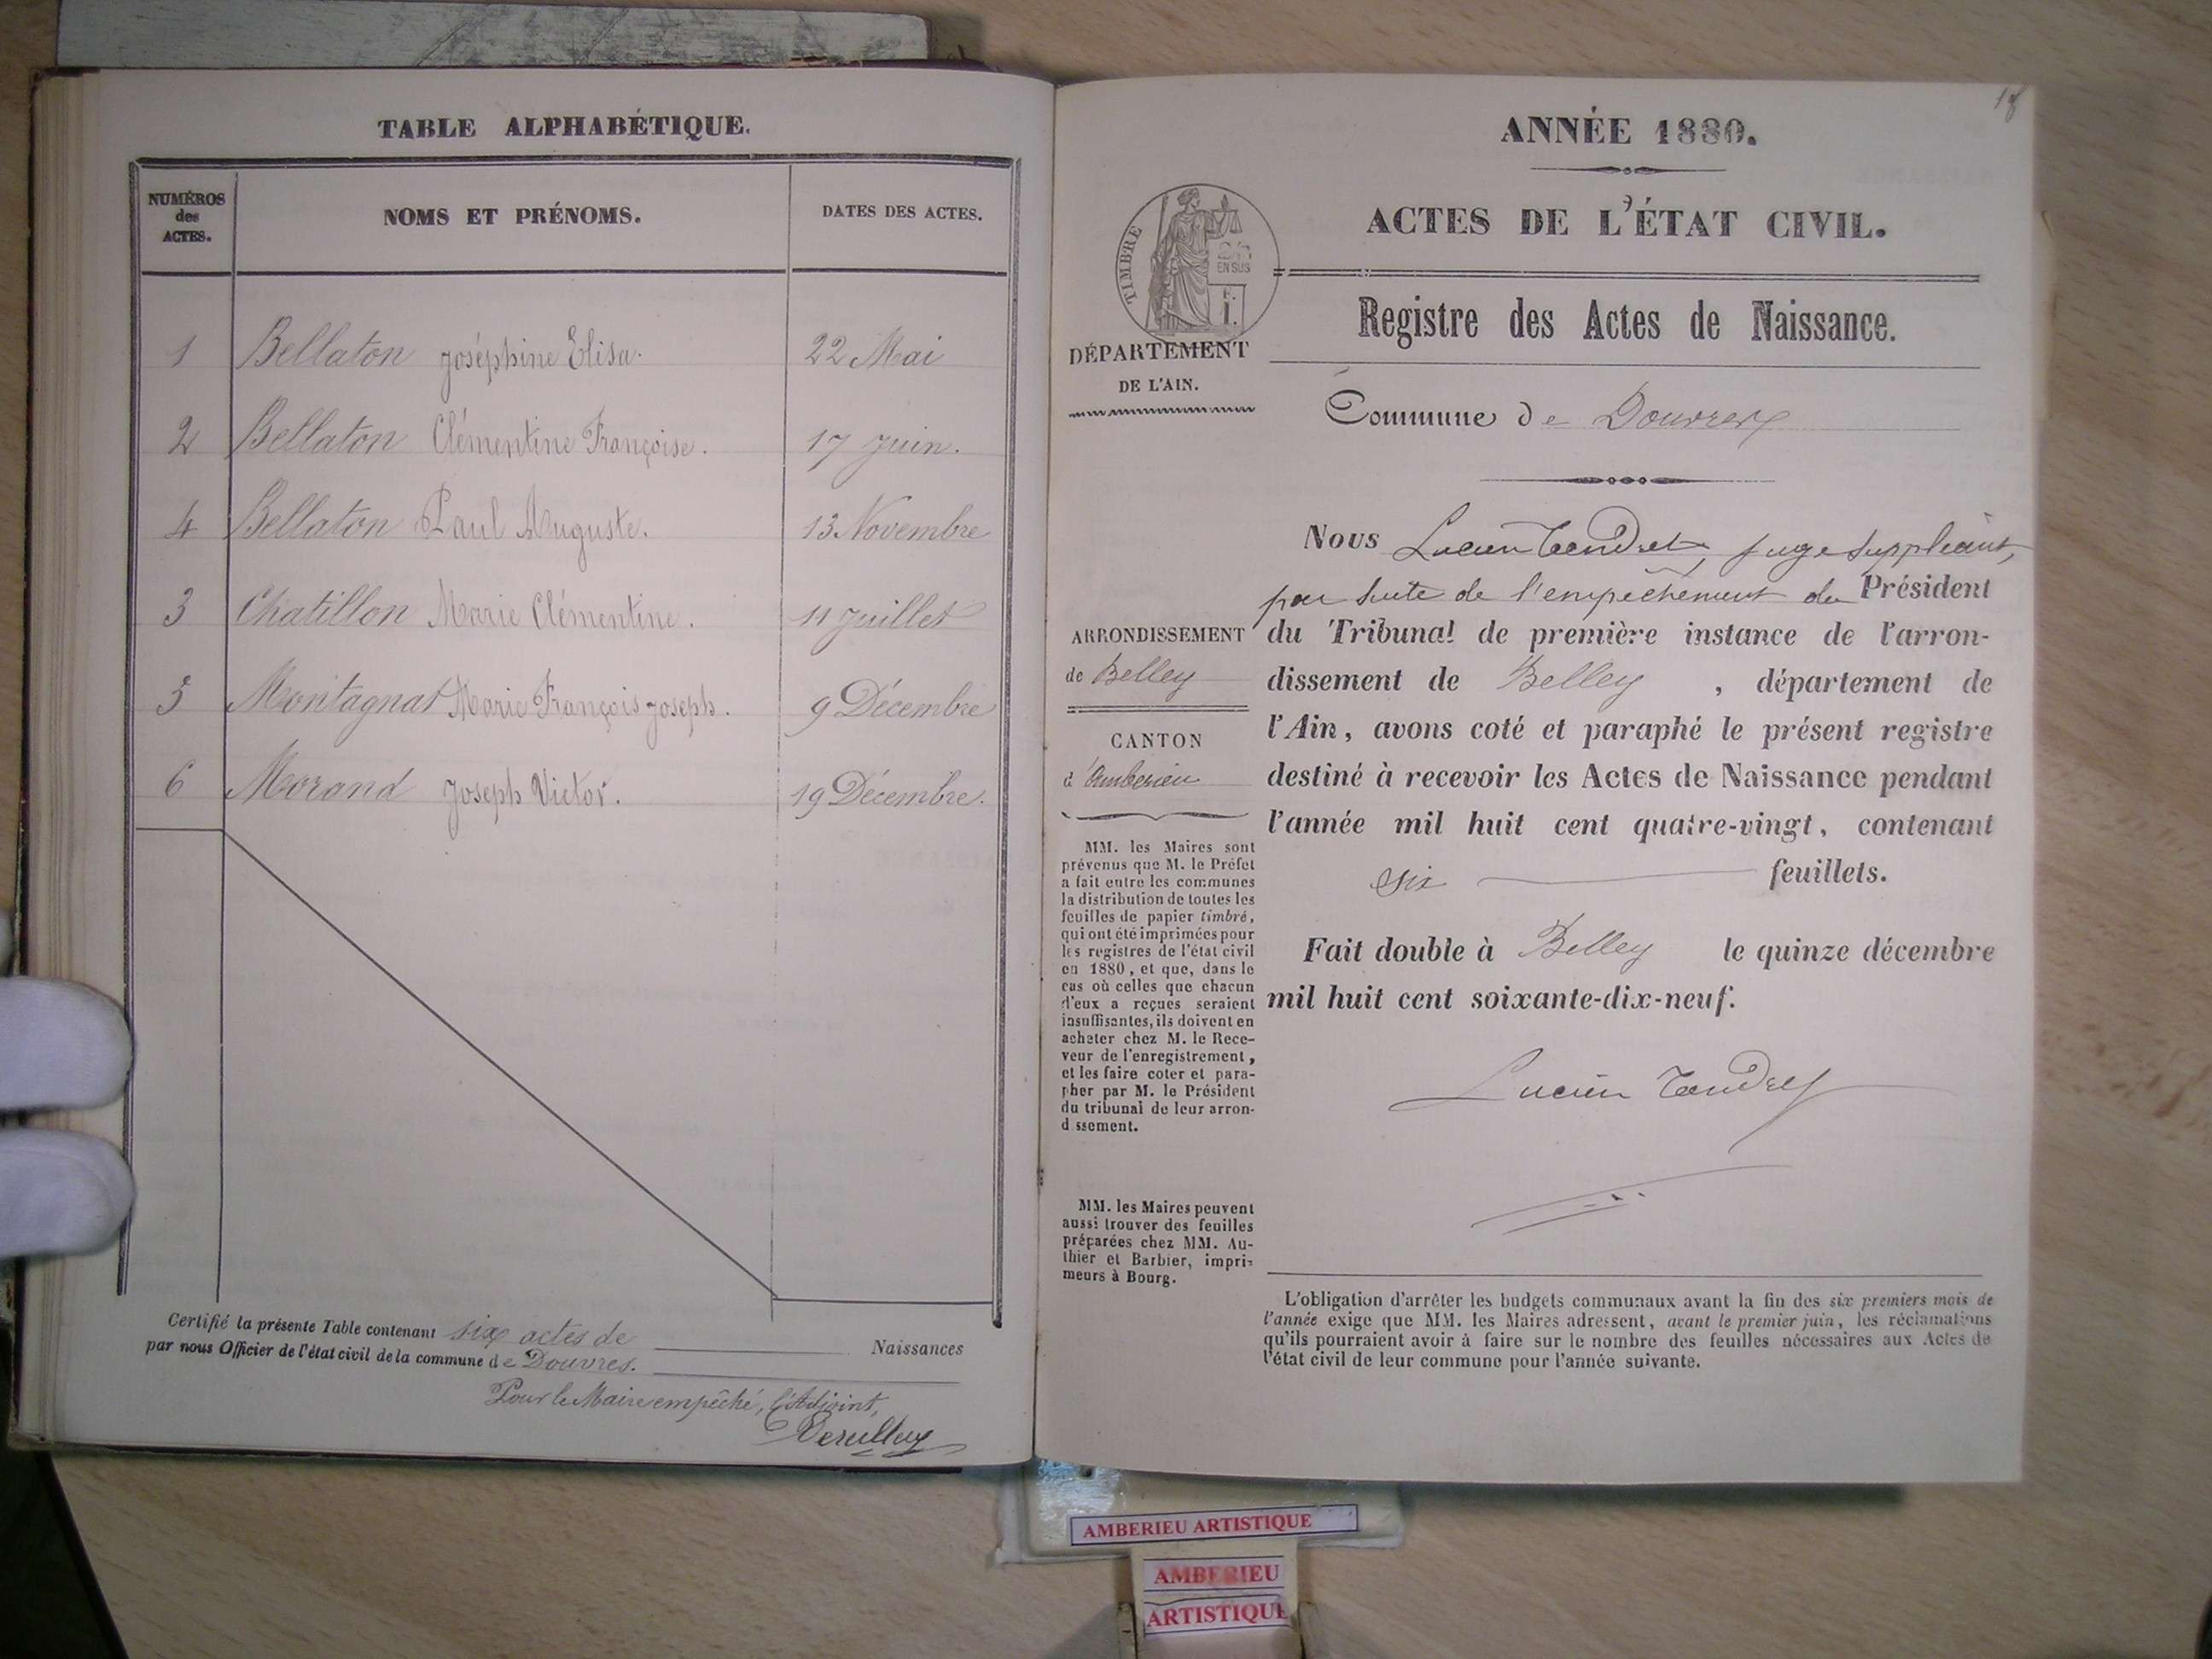 TABLE ALPHABÉTIQUE.
NUMÉROS
des
ACTES.
NOMS ET PRÉNOMS.
DATES DES ACTES.
1 Bellaton Joséphine Elisa. 22 Mai
2 Bellaton Clémentine Françoise. 17 Juin.
4 Bellaton Paul Auguste. 13 Novembre
3 Chatillon Marie Clémentine. 11 Juillet
5 Montagnat Marie François Joseph. 9 Décembre
6 Morand Joseph Victor. 19 Décembre.
Certifié la présente Table contenant six actes de Naissances
par nous Officier de l'état civil de la commune de Douvres.
Pour le Maire empêché, l'Adjoint,
18
ANNÉE 1880.
ACTES DE L'ÉTAT CIVIL.
TIMBRE
EN SUS
Registre des Actes de Naissance.
DÉPARTEMENT
DE L'AIN.
Commune de Douvres
Nous Lucien Tendret, juge suppléant,
par suite de l'empêchement du Président
du Tribunal de première instance de l'arron-
dissement de Belley, département de
l'Ain, avons coté et paraphé le présent registre
destiné à recevoir les Actes de Naissance pendant
l'année mil huit cent quatre-vingt, contenant
six feuillets.
Fait double à Belley le quinze décembre
mil huit cent soixante-dix-neuf.
Lucien Tendret
ARRONDISSEMENT
de Belley
CANTON
d'Ambérieu
MM. les Maires sont
prévenus que M. le Préfet
a fait entre les communes
la distribution de toutes les
feuilles de papier timbré,
qui ont été imprimées pour
les registres de l'état civil
en 1880, et que, dans le
cas où celles que chacun
d'eux a reçues seraient
insuffisantes, ils doivent en
acheter chez M. le Rece-
veur de l'enregistrement,
et les faire coter et para-
pher par M. le Président
du tribunal de leur arron-
d ssement.
MM. les Maires peuvent
aussi trouver des feuilles
préparées chez MM. Au-
thier et Barbier, impri-
meurs à Bourg.
L'obligation d'arrêter les budgets communaux avant la fin des six premiers mois de
l'année exige que MM. les Maires adressent, avant le premier juin, les réclamations
qu'ils pourraient avoir à faire sur le nombre des feuilles nécessaires aux Actes de
l'état civil de leur commune pour l'année suivante.
AMBERIEU ARTISTIQUE
AMBERIEU
ARTISTIQUE